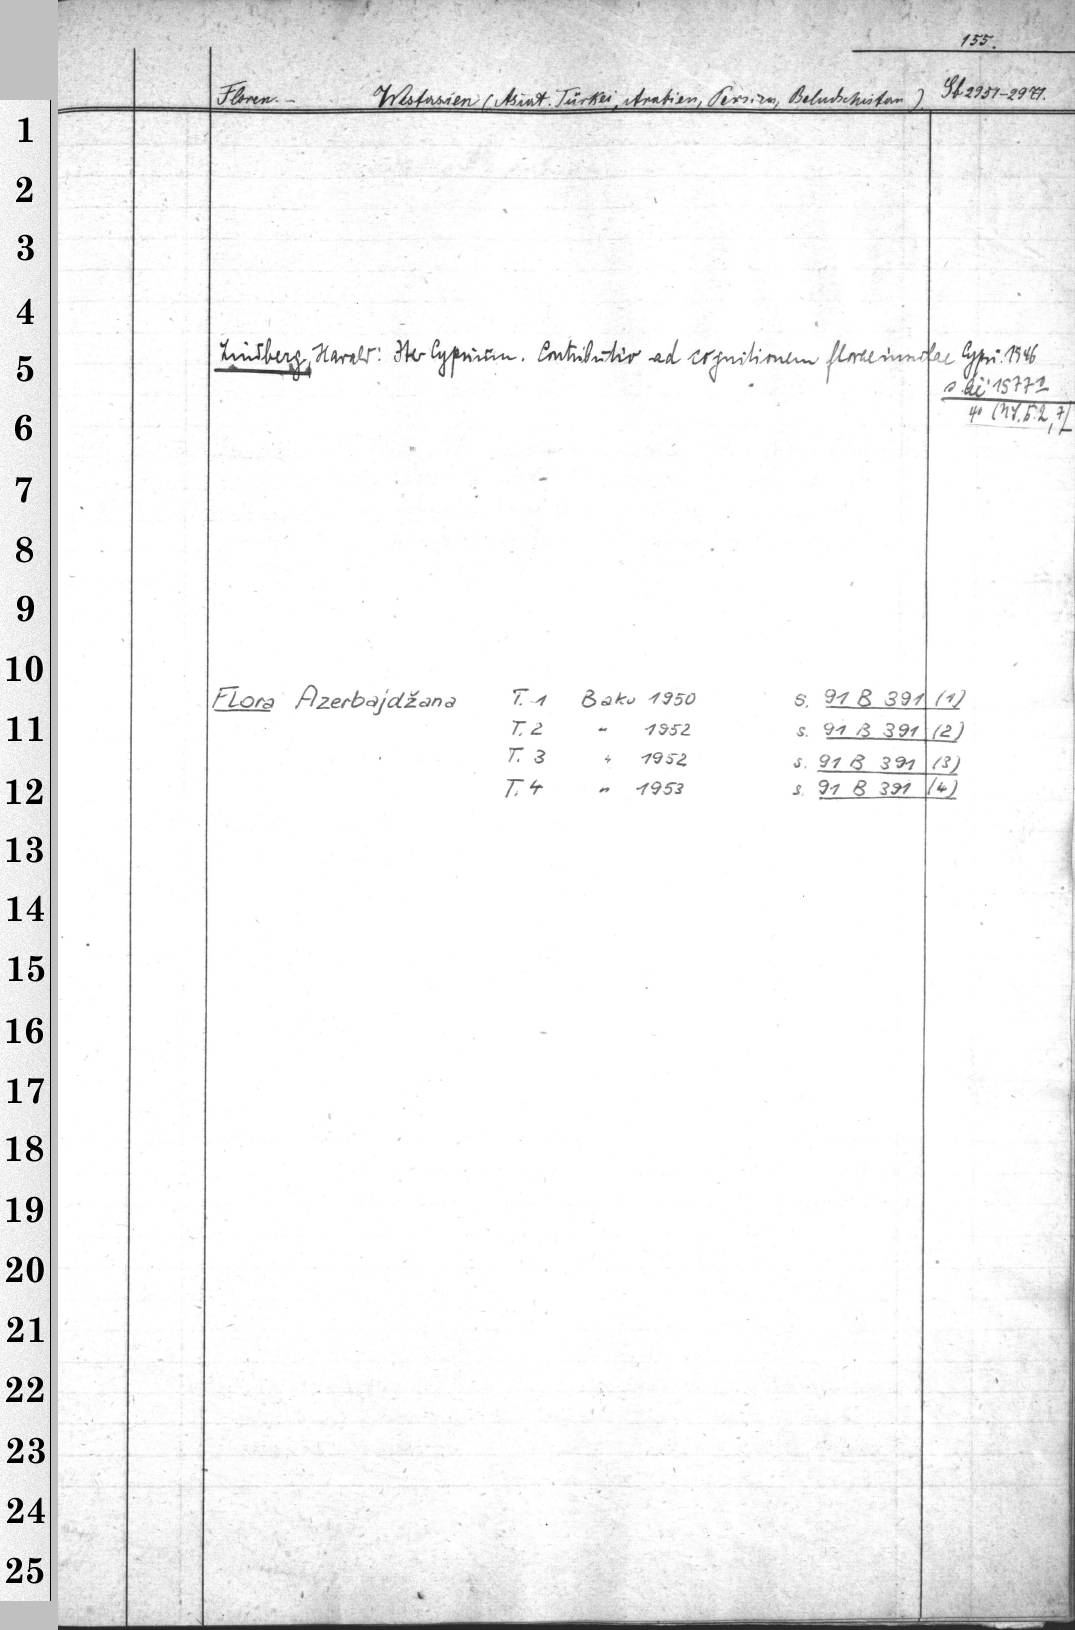 155.
Floren. - Westasien (Asiat. Türkei, Arabien, Persien, Beludschistan) St 2951-2971.
1
2
3
4
Lindberg, Harald: Iter Cyprium. Contributio ad cognitionem florae insulae Cypri. 1946
5
s. 1577
4° (N.S. 2, 7)
6
7
8
9
10
Flora Azerbajdžana T. 1 Baku 1950 s. 91 B 391 (1)
11
T. 2 " 1952 s. 91 B 391 (2)
T. 3 " 1952 s. 91 B 391 (3)
12
T. 4 " 1953 s. 91 B 391 (4)
13
14
15
16
17
18
19
20
21
22
23
24
25